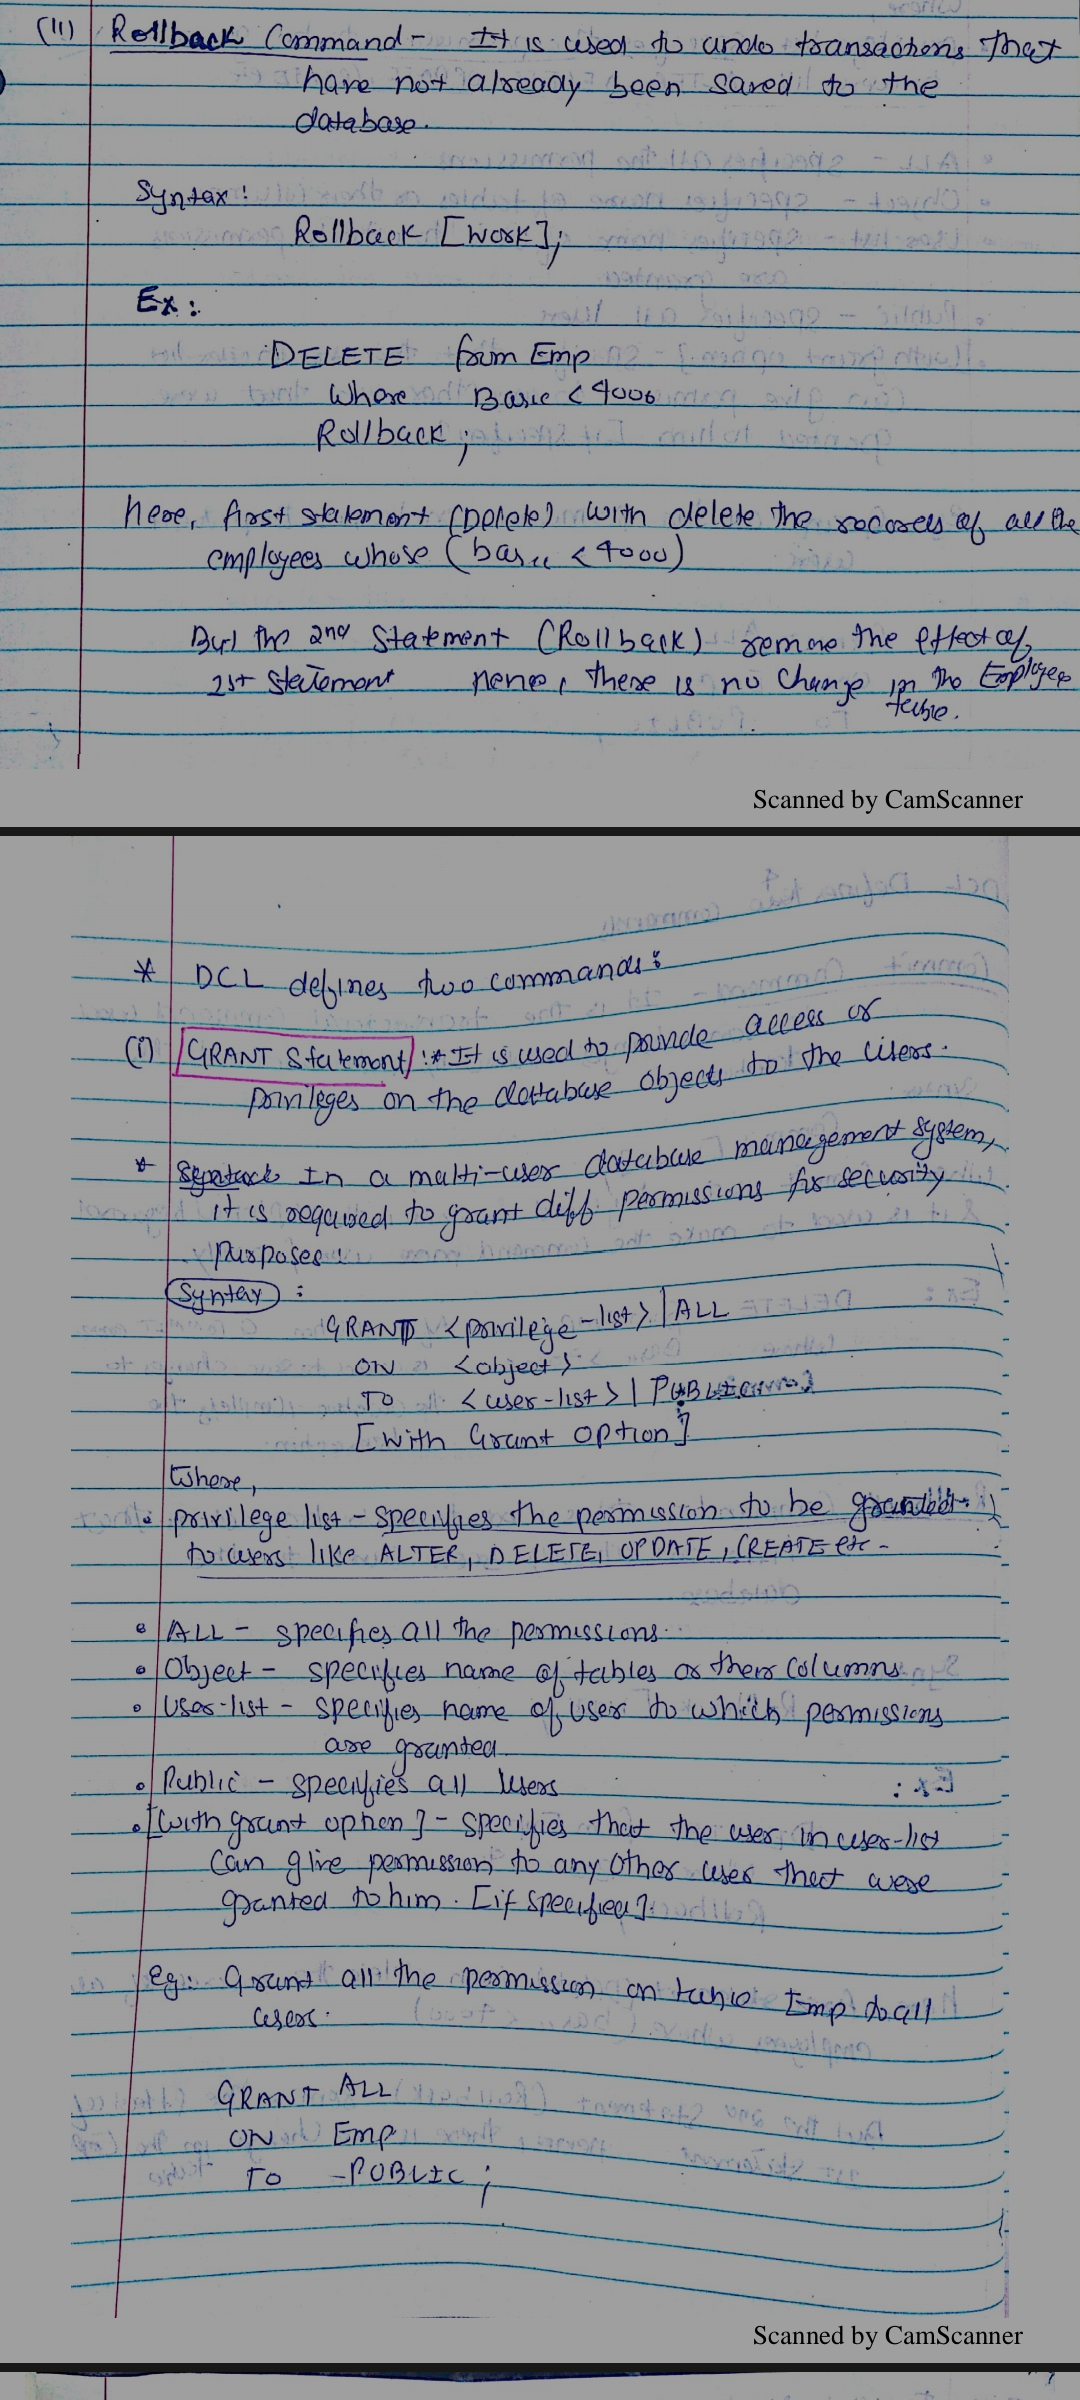 (ii) Rollback Command - It is used to undo transactions that
have not already been saved to the
database.
Syntax:
Rollback [work];
Ex:
DELETE from Emp
Where Basic < 4000
Rollback;
here, first statement (Delete) with delete the records of all the
employees whose (basic < 4000)
But the 2nd Statement (Rollback) remove the effect of
1st Statement hence, there is no change in the Employee
table.
Scanned by CamScanner
* DCL defines two commands:
(i) GRANT Statement : * It is used to provide access or
privileges on the database objects to the users.
* In a multi-user database management system,
it is required to grant diff. permissions for security
purposes:
Syntax :
GRANT <privilege-list> | ALL
ON <object>
TO <user-list> | PUBLIC
[with Grant option]
Where,
• privilege list - specifies the permission to be granted
to users like ALTER, DELETE, UPDATE, CREATE etc -
• ALL - specifies all the permissions.
• Object - specifies name of tables or their columns
• User-list - specifies name of user to which permissions
are granted
• Public - specifies all users
• [with grant option] - specifies that the user in user-list
can give permission to any other user that were
granted to him. [if specified].
eg: Grant all the permission on table Emp to all
users.
GRANT ALL
ON Emp
TO PUBLIC;
Scanned by CamScanner